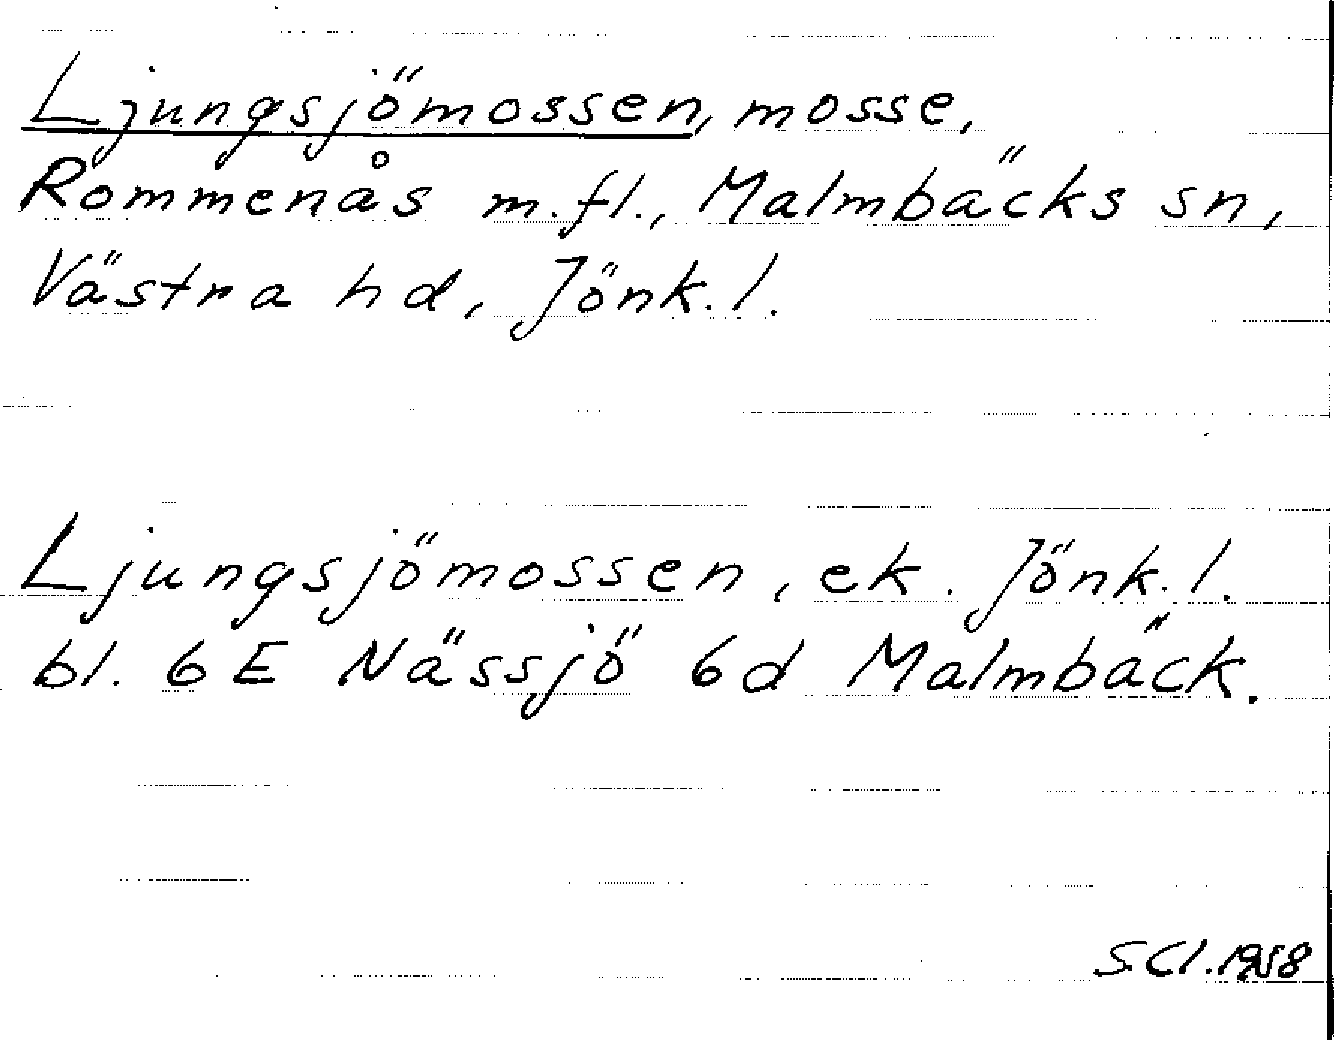 Ljungsjömossen, mosse,
Rommenås m.fl., Malmbäcks sn,
Västra hd, Jönk.l.
Ljungsjömossen, ek. Jönk.l.
bl. 6E Nässjö 6d Malmbäck.
SCl.1958